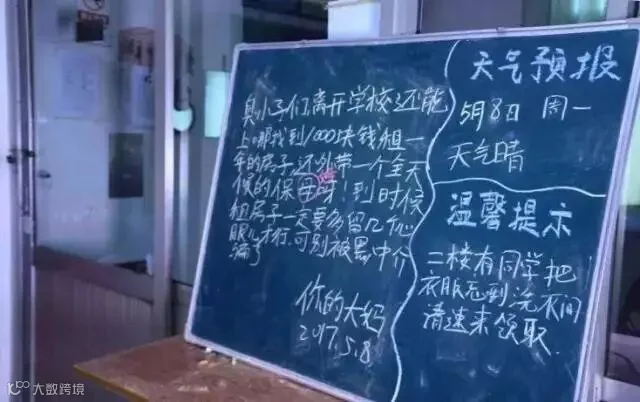 臭小子们,离开学校还能
上哪找到1000块钱租一
年的房子还外带一个全天
候的保母呀!到时候
租房子一定要多留几个心
眼儿才行.可别被黑中介
骗了
你的大妈
2017.5.8
天气预报
5月8日 周一
天气晴
温馨提示
二楼有同学把
衣服忘到洗衣间
请速来领取.
大数跨境